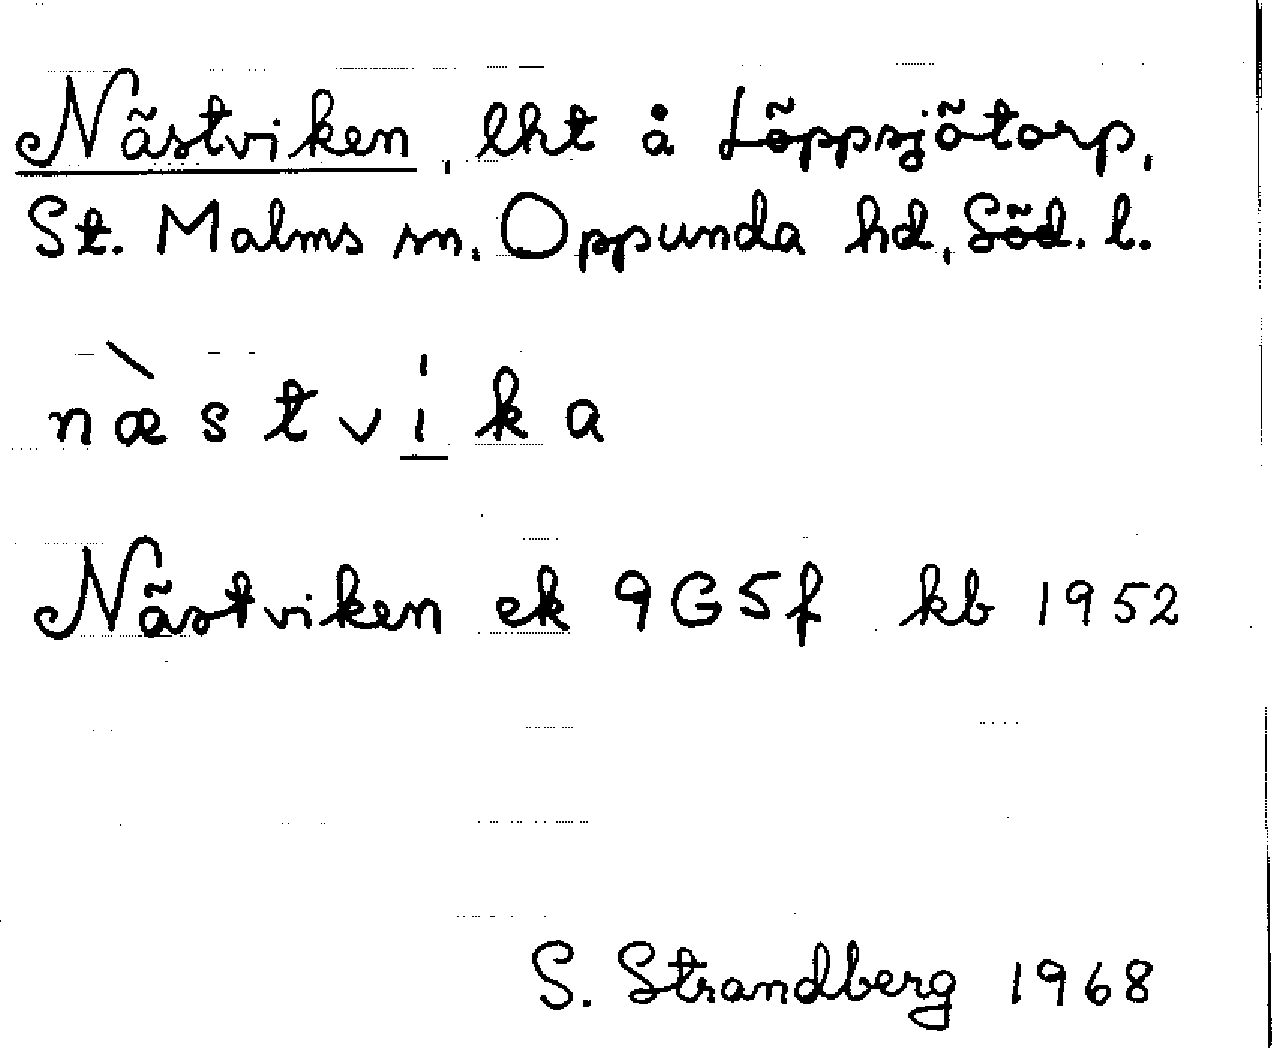 Nästviken, lht å Löppsjötorp,
St. Malms sn. Oppunda hd, Söd. l.
næ̀ství̱ka
Nästviken ek 9G5f kb 1952
S. Strandberg 1968